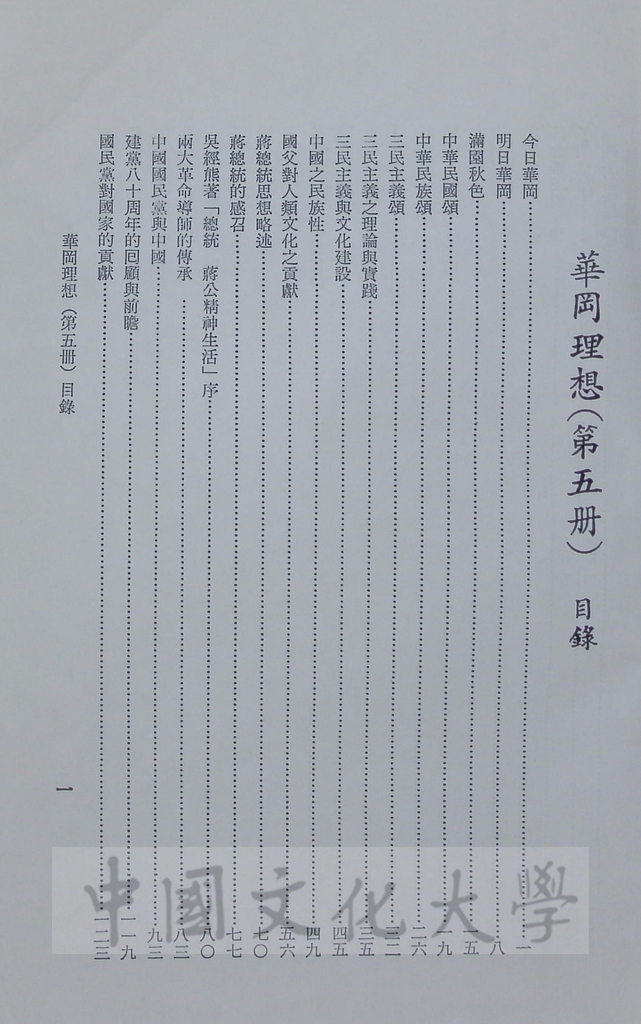 華岡理想(第五册) 目錄
今日華岡……一
明日華岡……八
滿園秋色……一五
中華民國頌……一九
中華民族頌……二六
三民主義頌……三二
三民主義之理論與實踐……三五
三民主義與文化建設……四五
中國之民族性……四九
國父對人類文化之貢獻……五六
蔣總統思想略述……七〇
蔣總統的感召……七七
吳經熊著「總統 蔣公精神生活」序……八〇
兩大革命導師的傳承……八三
中國國民黨與中國……九三
建黨八十周年的回顧與前瞻……一一九
國民黨對國家的貢獻……一二三
華岡理想(第五册)目錄
一
中國文化大學